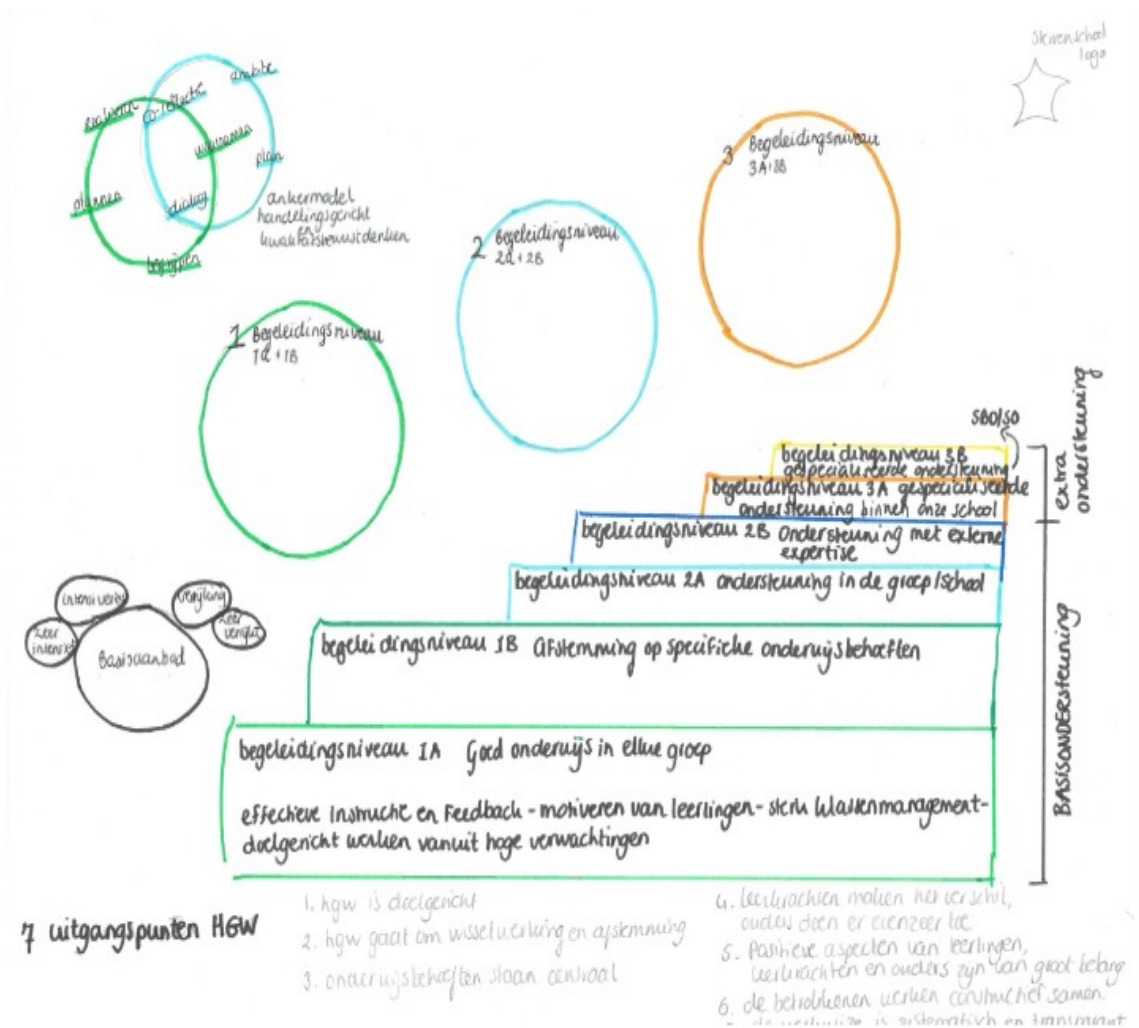 Sterrenschool
logo
ambitie
co-reflectie
evalueren
waarnemen
plan
plannen
dialoog
begrijpen
ankermodel
handelingsgericht
en
kwaliteitsbewust denken
3 Begeleidingsniveau
3A+3B
2 Begeleidingsniveau
2a+2B
1 Begeleidingsniveau
1a+1B
SBO/SO
begeleidingsniveau 3B
gespecialiseerde ondersteuning
begeleidingsniveau 3A gespecialiseerde
ondersteuning binnen onze school
begeleidingsniveau 2B ondersteuning met externe
expertise
begeleidingsniveau 2A ondersteuning in de groep/school
begeleidingsniveau 1B afstemming op specifieke onderwijsbehoeften
begeleidingsniveau 1A Goed onderwijs in elke groep
effectieve instructie en Feedback - motiveren van leerlingen - sterk klassenmanagement-
doelgericht werken vanuit hoge verwachtingen
extra
ondersteuning
BASISONDERSTEUNING
intensivering
verrijking
zeer
intensief
zeer
verrijkt
Basisaanbod
7 uitgangspunten HGW
1. hgw is doelgericht
2. hgw gaat om wisselwerking en afstemming
3. onderwijsbehoeften staan centraal
4. leerkrachten maken het verschil,
ouders doen er evenzeer toe
5. Positieve aspecten van leerlingen,
leerkrachten en ouders zijn van groot belang
6. de betrokkenen werken constructief samen.
de werkwijze is systematisch en transparant